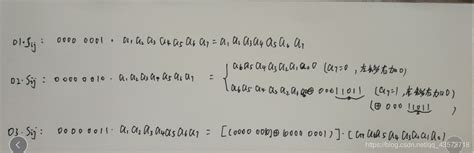 01·Sij: 0000 0001 · a₁a₂a₃a₄a₅a₆a₇ = a₁a₂a₃a₄a₅a₆a₇
02·Sij: 0000 0010 · a₁a₂a₃a₄a₅a₆a₇ = { a₆a₅a₄a₃a₂a₁a₀0 (a₇=0, 左移右加0)
a₆a₅a₄a₃a₂a₁a₀0 ⊕ 00011011 (a₇=1, 左移右加0)
(⊕ 00011011)
03·Sij: 0000 0011 · a₁a₂a₃a₄a₅a₆a₇ = [(0000 0010)⊕(0000 0001)]·(a₇a₆a₅a₄a₃a₂a₁a₀)
https://blog.csdn.net/qq_43573718